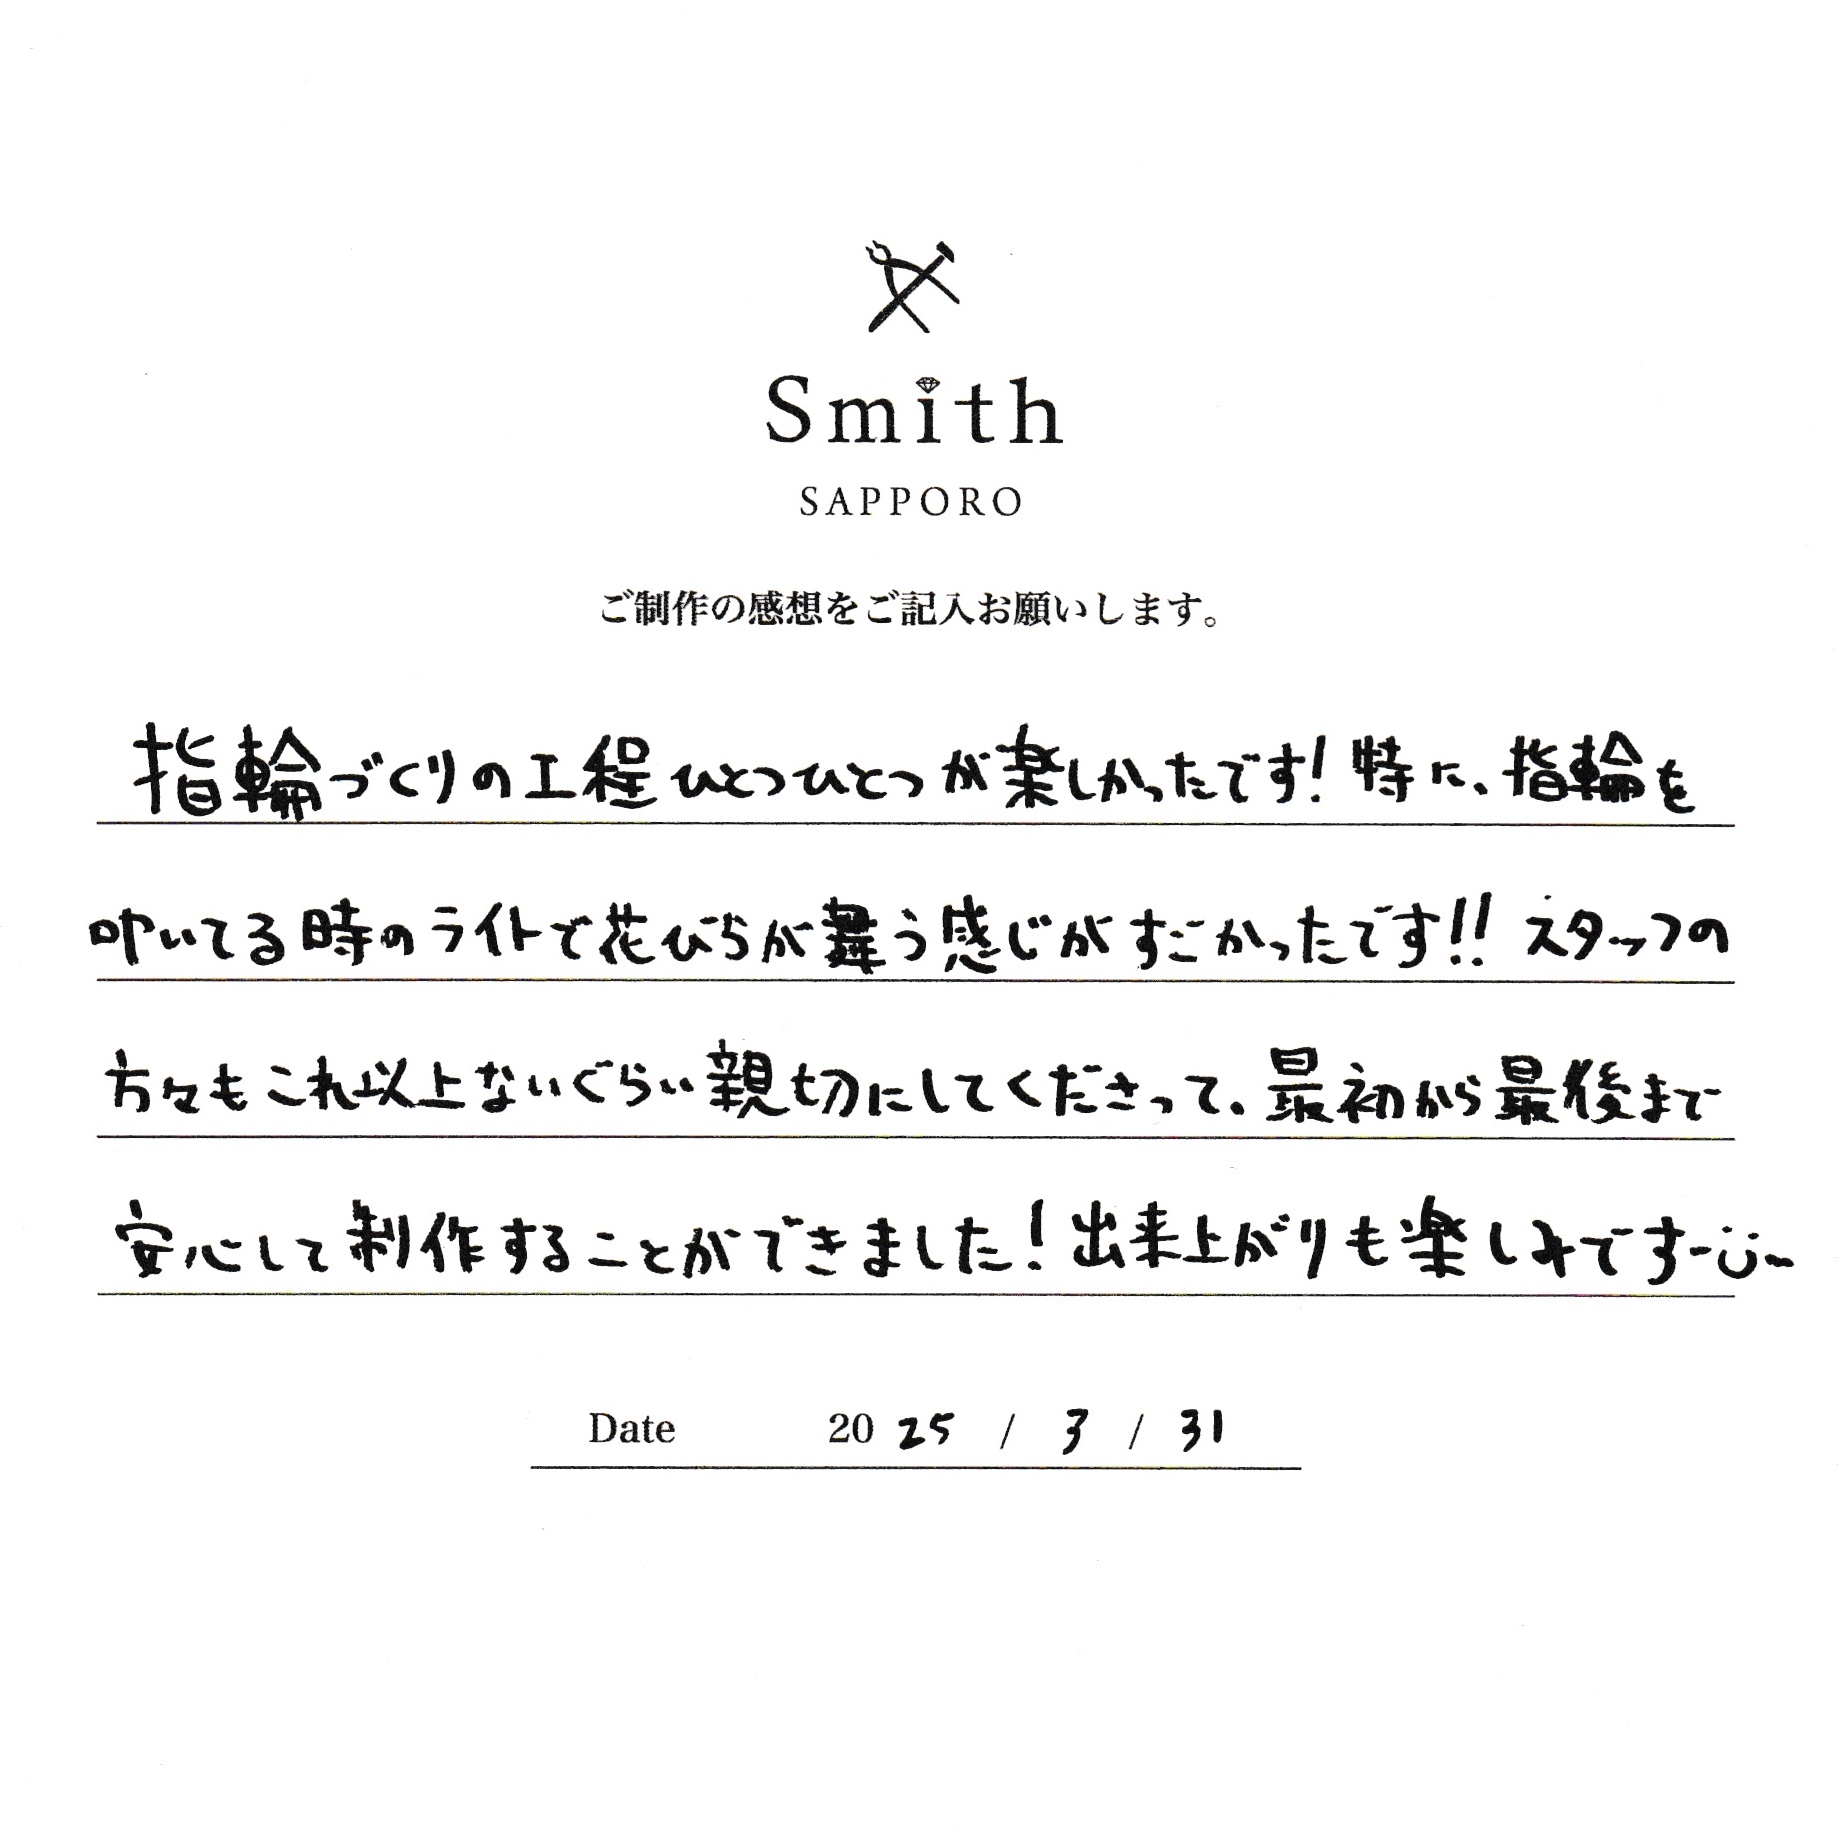 Smith
SAPPORO
ご制作の感想をご記入お願いします。
指輪づくりの工程ひとつひとつが楽しかったです！特に、指輪を
叩いてる時のライトで花びらが舞う感じがすごかったです!! スタッフの
方々もこれ以上ないぐらい親切にしてくださって、最初から最後まで
安心して制作することができました！出来上がりも楽しみですー
Date 2025 / 3 / 31